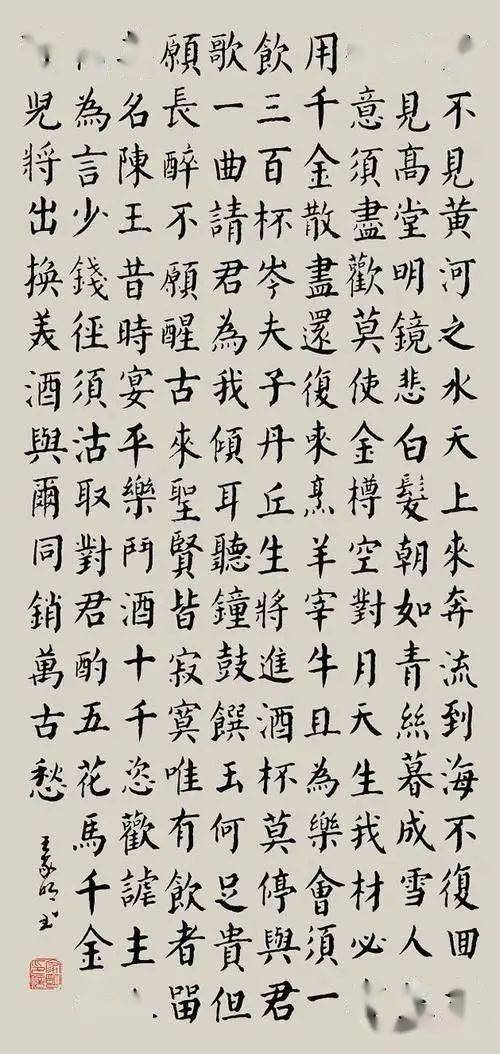 不見黃河之水天上來奔流到海不復回
見高堂明鏡悲白髮朝如青絲暮成雪人
意須盡歡莫使金樽空對月天生我材必
用千金散盡還復來烹羊宰牛且為樂會須一
飲三百杯岑夫子丹丘生將進酒杯莫停與君
歌一曲請君為我傾耳聽鐘鼓饌玉何足貴但
願長醉不願醒古來聖賢皆寂寞唯有飲者留
名陳王昔時宴平樂鬥酒十千恣歡謔主
為言少錢徑須沽取對君酌五花馬千金
兒將出換美酒與爾同銷萬古愁